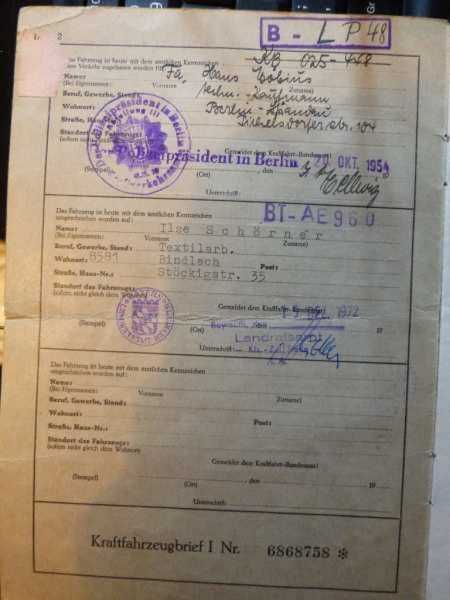 2
B - L P 48
Das Fahrzeug ist heute mit dem amtlichen Kennzeichen
zum Verkehr zugelassen worden für: Fa. Hans
Name:
(Bei Eigennamen: Vorname Zuname)
Beruf, Gewerbe, Stand: Kaufmann
Wohnort: Berlin - Spandau
Straße, 104
Standort
(sofern nicht
Polizeipräsident in Berlin
Gemeldet dem Kraftfahrt-Bundesamt!
Polizeipräsident in Berlin 29. OKT. 1954
(Stempel)
Unterschrift:
BT-AE 960
Das Fahrzeug ist heute mit dem amtlichen Kennzeichen
umgeschrieben worden auf:
Name: Ilse Schörner
(Bei Eigennamen: Vorname Zuname)
Beruf, Gewerbe, Stand: Textilarb.
Wohnort: 8581 Bindlach Post:
Straße, Haus-Nr.: Stöckigstr. 35
Standort des Fahrzeugs:
(sofern nicht gleich dem Wohnort)
Gemeldet dem Kraftfahrt-Bundesamt!
1972
(Stempel) (Ort) 19
Landratsamt
Unterschrift:
Das Fahrzeug ist heute mit dem amtlichen Kennzeichen
umgeschrieben worden auf:
Name:
(Bei Eigennamen: Vorname Zuname)
Beruf, Gewerbe, Stand:
Wohnort: Post:
Straße, Haus-Nr.:
Standort des Fahrzeugs:
(sofern nicht gleich dem Wohnort)
Gemeldet dem Kraftfahrt-Bundesamt!
, den 19
(Stempel) (Ort)
Unterschrift:
Kraftfahrzeugbrief I Nr. 6868758 *